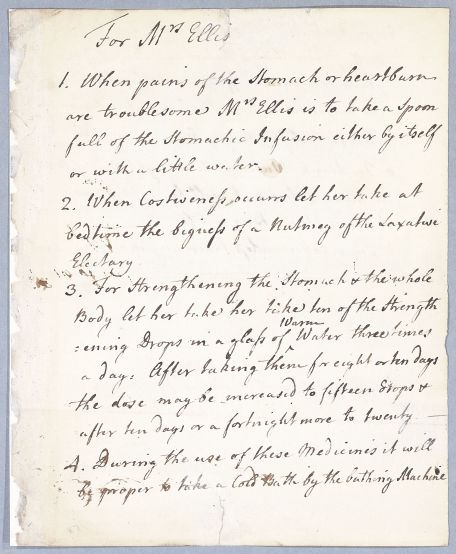 For Mrs Ellis
1. When pains of the Stomach or heartburn
are troublesome Mrs Ellis is to take a spoon
full of the Stomachic Infusion either by itself
or with a little water.
2. When Costiveness occurrs let her take at
bedtime the bigness of a Nutmeg of the Laxative
Electary
3. For Strengthening the Stomach & the whole
Body let her take her take ten of the Strength
:ening Drops in a glass of Warm Water three times
a day: After taking them for eight or ten days
the dose may be increased to fifteen drops &
after ten days or a fortnight more to twenty —
4. During the use of these Medicines it will
be proper to take a Cold Bath by the bathing Machine